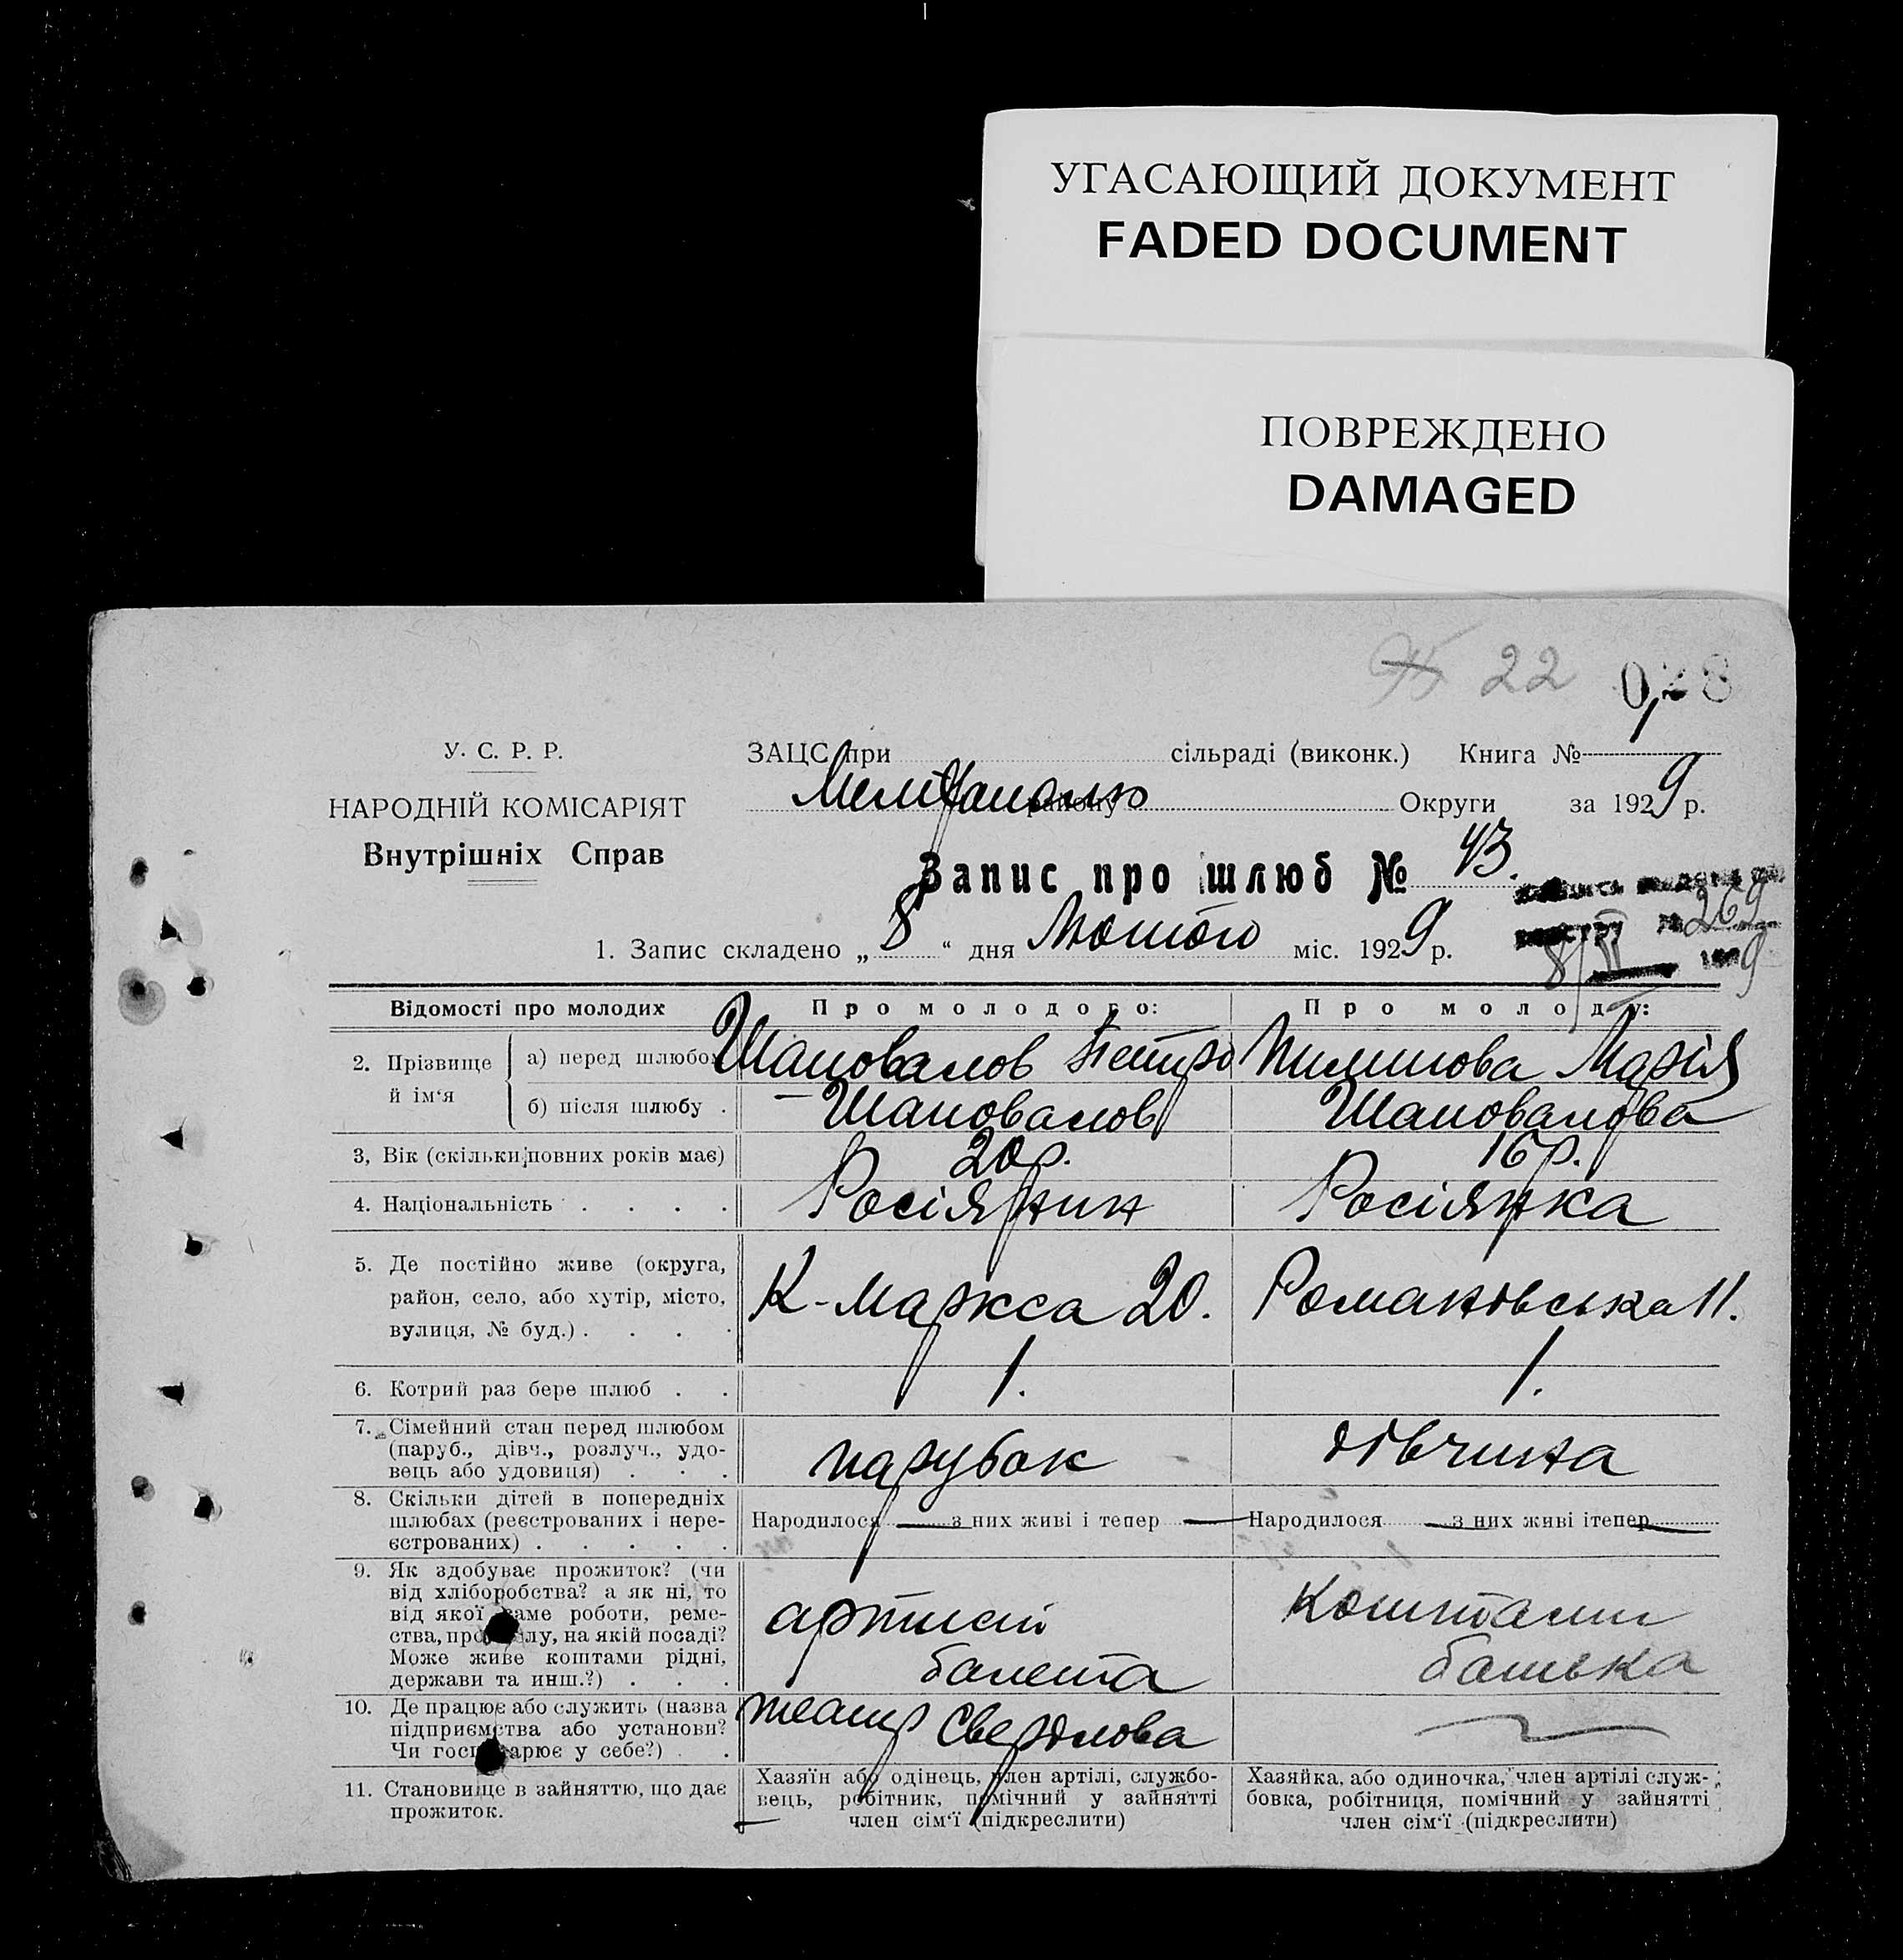 УГАСАЮЩИЙ ДОКУМЕНТ
FADED DOCUMENT
ПОВРЕЖДЕНО
DAMAGED
22
У. С. Р. Р.
НАРОДНІЙ КОМІСАРІЯТ
Внутрішніх Справ
ЗАЦС при сільраді (виконк.) Книга №
Мелітополю району Округи за 1929 р.
Запис про шлюб № 43.
269
1. Запис складено „ 8 “ дня Лютого міс. 1929 р.
8/II 1929
Відомості про молодих Про молодого: Про молоду:
2. Прізвище й ім‘я
а) перед шлюбом Шаповалов Петро Пилипова Марія
б) після шлюбу . Шаповалов Шаповалова
3, Вік (скільки повних років має) 20 р. 16 р.
4. Національність . . . . Росіянин Росіянка
5. Де постійно живе (округа,
район, село, або хутір, місто,
вулиця, № буд.) . . . . К-Маркса 20. Романовська 11.
6. Котрий раз бере шлюб . . 1. 1.
7. Сімейний стан перед шлюбом
(паруб., дівч., розлуч., удо-
вець або удовиця) . . . парубок дівчина
8. Скільки дітей в попередніх
шлюбах (реєстрованих і нере-
єстрованих) . . . . . Народилося — з них живі і тепер — Народилося — з них живі і тепер —
9. Як здобуває прожиток? (чи
від хліборобства? а як ні, то
від якої саме роботи, реме-
ства, промислу, на якій посаді?
Може живе коштами рідні,
держави та инш.?) . . .
артист
балета
Коштами
батька
10. Де працює або служить (назва
підприємства або установи?
Чи господарює у себе?) . . театр Свердлова
11. Становище в зайняттю, що дає
прожиток.
Хазяїн або одінець, член артілі, службо-
вець, робітник, помічний у зайнятті
член сім‘ї (підкреслити)
Хазяйка, або одиночка, член артілі служ-
бовка, робітниця, помічний у зайнятті
член сім‘ї (підкреслити)